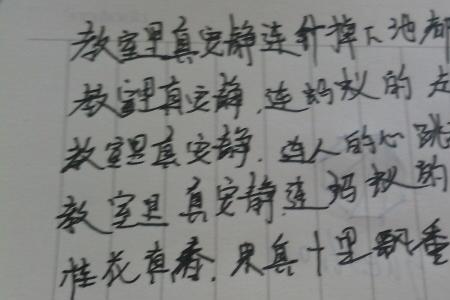 教室里真安静连针掉下地都
教室里真安静,连蚂蚁的走
教室里真安静.连人的心跳
教室里真安静,连蚂蚁的
桂花真香.果真十里飘香